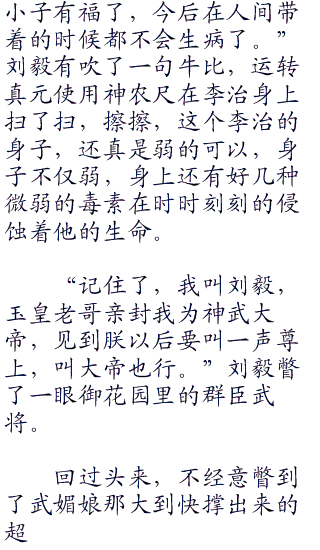 小子有福了，今后在人间带
着的时候都不会生病了。”
刘毅有吹了一句牛比，运转
真元使用神农尺在李治身上
扫了扫，擦擦，这个李治的
身子，还真是弱的可以，身
子不仅弱，身上还有好几种
微弱的毒素在时时刻刻的侵
蚀着他的生命。
“记住了，我叫刘毅，
玉皇老哥亲封我为神武大
帝，见到朕以后要叫一声尊
上，叫大帝也行。”刘毅瞥
了一眼御花园里的群臣武
将。
回过头来，不经意瞥到
了武媚娘那大到快撑出来的
超